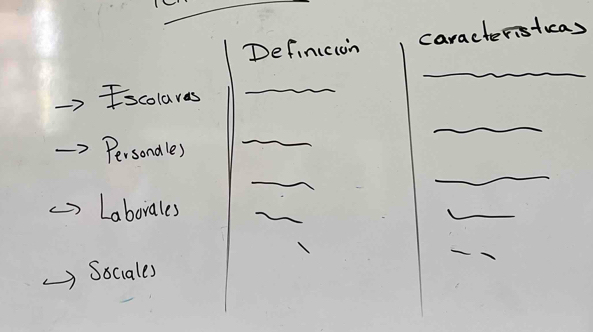 Definición
Caracteristicas
→ Escolares
→ Personales
→ Laborales
→ Sociales